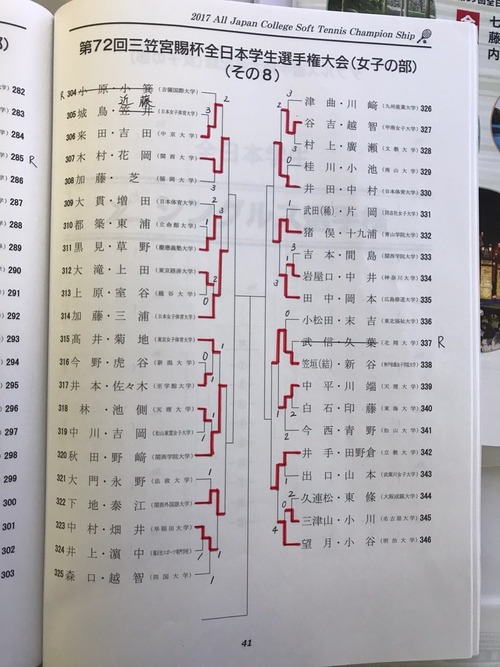 2017 All Japan College Soft Tennis Champion Ship
第72回三笠宮賜杯全日本学生選手権大会(女子の部)
(その8)
R 304 小原・小 (吉備国際大学)
近藤
305 城島・笠井 (日本体育大学)
306 来田・吉田 (中京大学)
307 木村・花岡 (関西大学)
308 加藤・芝 (福岡大学)
309 大貫・増田 (日本体育大学)
310 都築・東浦 (立命館大学)
311 黒見・草野 (慶應義塾大学)
312 大滝・上田 (東京経済大学)
313 上原・室谷 (龍谷大学)
314 加藤・三浦 (日本女子体育大学)
315 髙井・菊地 (東京女子体育大学)
316 今野・虎谷 (新潟大学)
317 井本・佐々木 (至学館大学)
318 林・池側 (天理大学)
319 中川・吉岡 (松山東雲女子大学)
320 秋田・野﨑 (関西学院大学)
321 大門・永野 (法政大学)
322 下地・泰江 (関西外国語大学)
323 中村・畑井 (早稲田大学)
324 井上・濵中
325 森口・越智 (四国大学)
津曲・川﨑 (九州産業大学) 326
谷吉・越智 (甲南女子大学) 327
村上・廣瀬 (文教大学) 328
桂川・小池 (南山大学) 329
井田・中村 (日本体育大学) 330
武田(稀)・片岡 (同志社女子大学) 331
猪俣・十九浦 (青山学院大学) 332
吉本・間島 (関西学院大学) 333
岩屋口・中井 (神奈川大学) 334
田中・岡本 (広島修道大学) 335
小松田・末吉 (東北福祉大学) 336
武信・久葉 (北岡大学) 337 R
笠垣(結)・新谷 (神戸松蔭女子学院大学) 338
中平・川端 (天理大学) 339
白石・印藤 (東海大学) 340
今西・青野 (松山大学) 341
井手・田野倉 (立教大学) 342
出口・山本 (武庫川女子大学) 343
久連松・東條 (大阪成蹊大学) 344
三津山・小川 (名古屋大学) 345
望月・小谷 (明治大学) 346
282
283
284
285 R
286
287
288
289
290
291
292
293
294
295
296
297
298
299
300
301
302
303
41